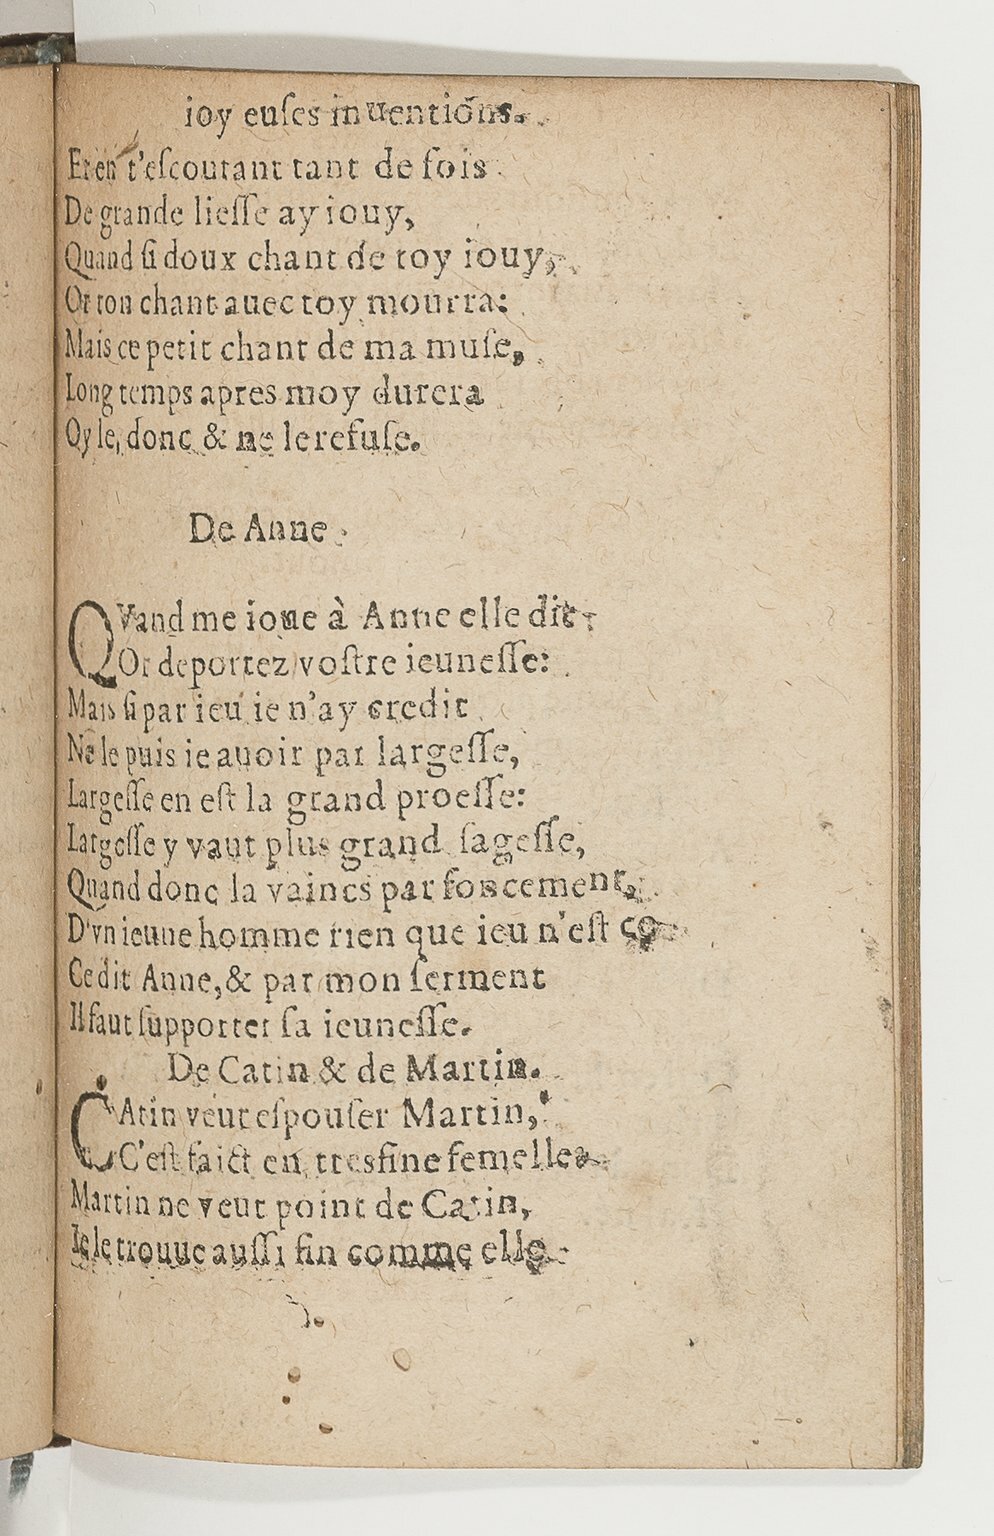 ioy euſes inuentions.
Et en t'eſcoutant tant de fois
De grande lieſſe ay iouy,
Quand ſi doux chant de toy iouy,
Or ton chant auec toy mourra:
Mais ce petit chant de ma muſe,
Long temps apres moy durera
Oy le, donc & ne le refuſe.
De Anne
QVand me ioue à Anne elle dit
Or deportez voſtre ieuneſſe:
Mais ſi par ieu ie n'ay credit
Ne le puis ie auoir par largeſſe,
Largeſſe en eſt la grand proeſſe:
Largeſſe y vaut plus grand ſageſſe,
Quand donc la vaincs par foncement,
D'vn ieune homme rien que ieu n'eſt ço
Ce dit Anne, & par mon ſerment
Il faut ſupporter ſa ieuneſſe.
De Catin & de Martin.
CAtin veut eſpouſer Martin,
C'eſt faict en tresfine femelle
Martin ne veut point de Catin,
Ie le trouue auſſi fin comme elle